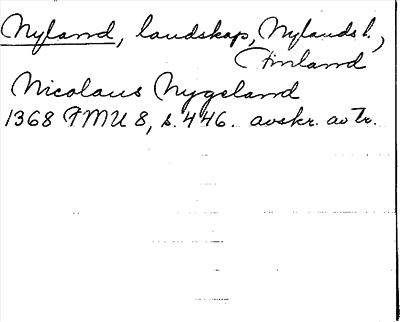 Nyland, landskap, Nylands l.,
(Finland
Nicolaus Nygeland
1368 FMU 8, s. 446. avskr. av Tr.